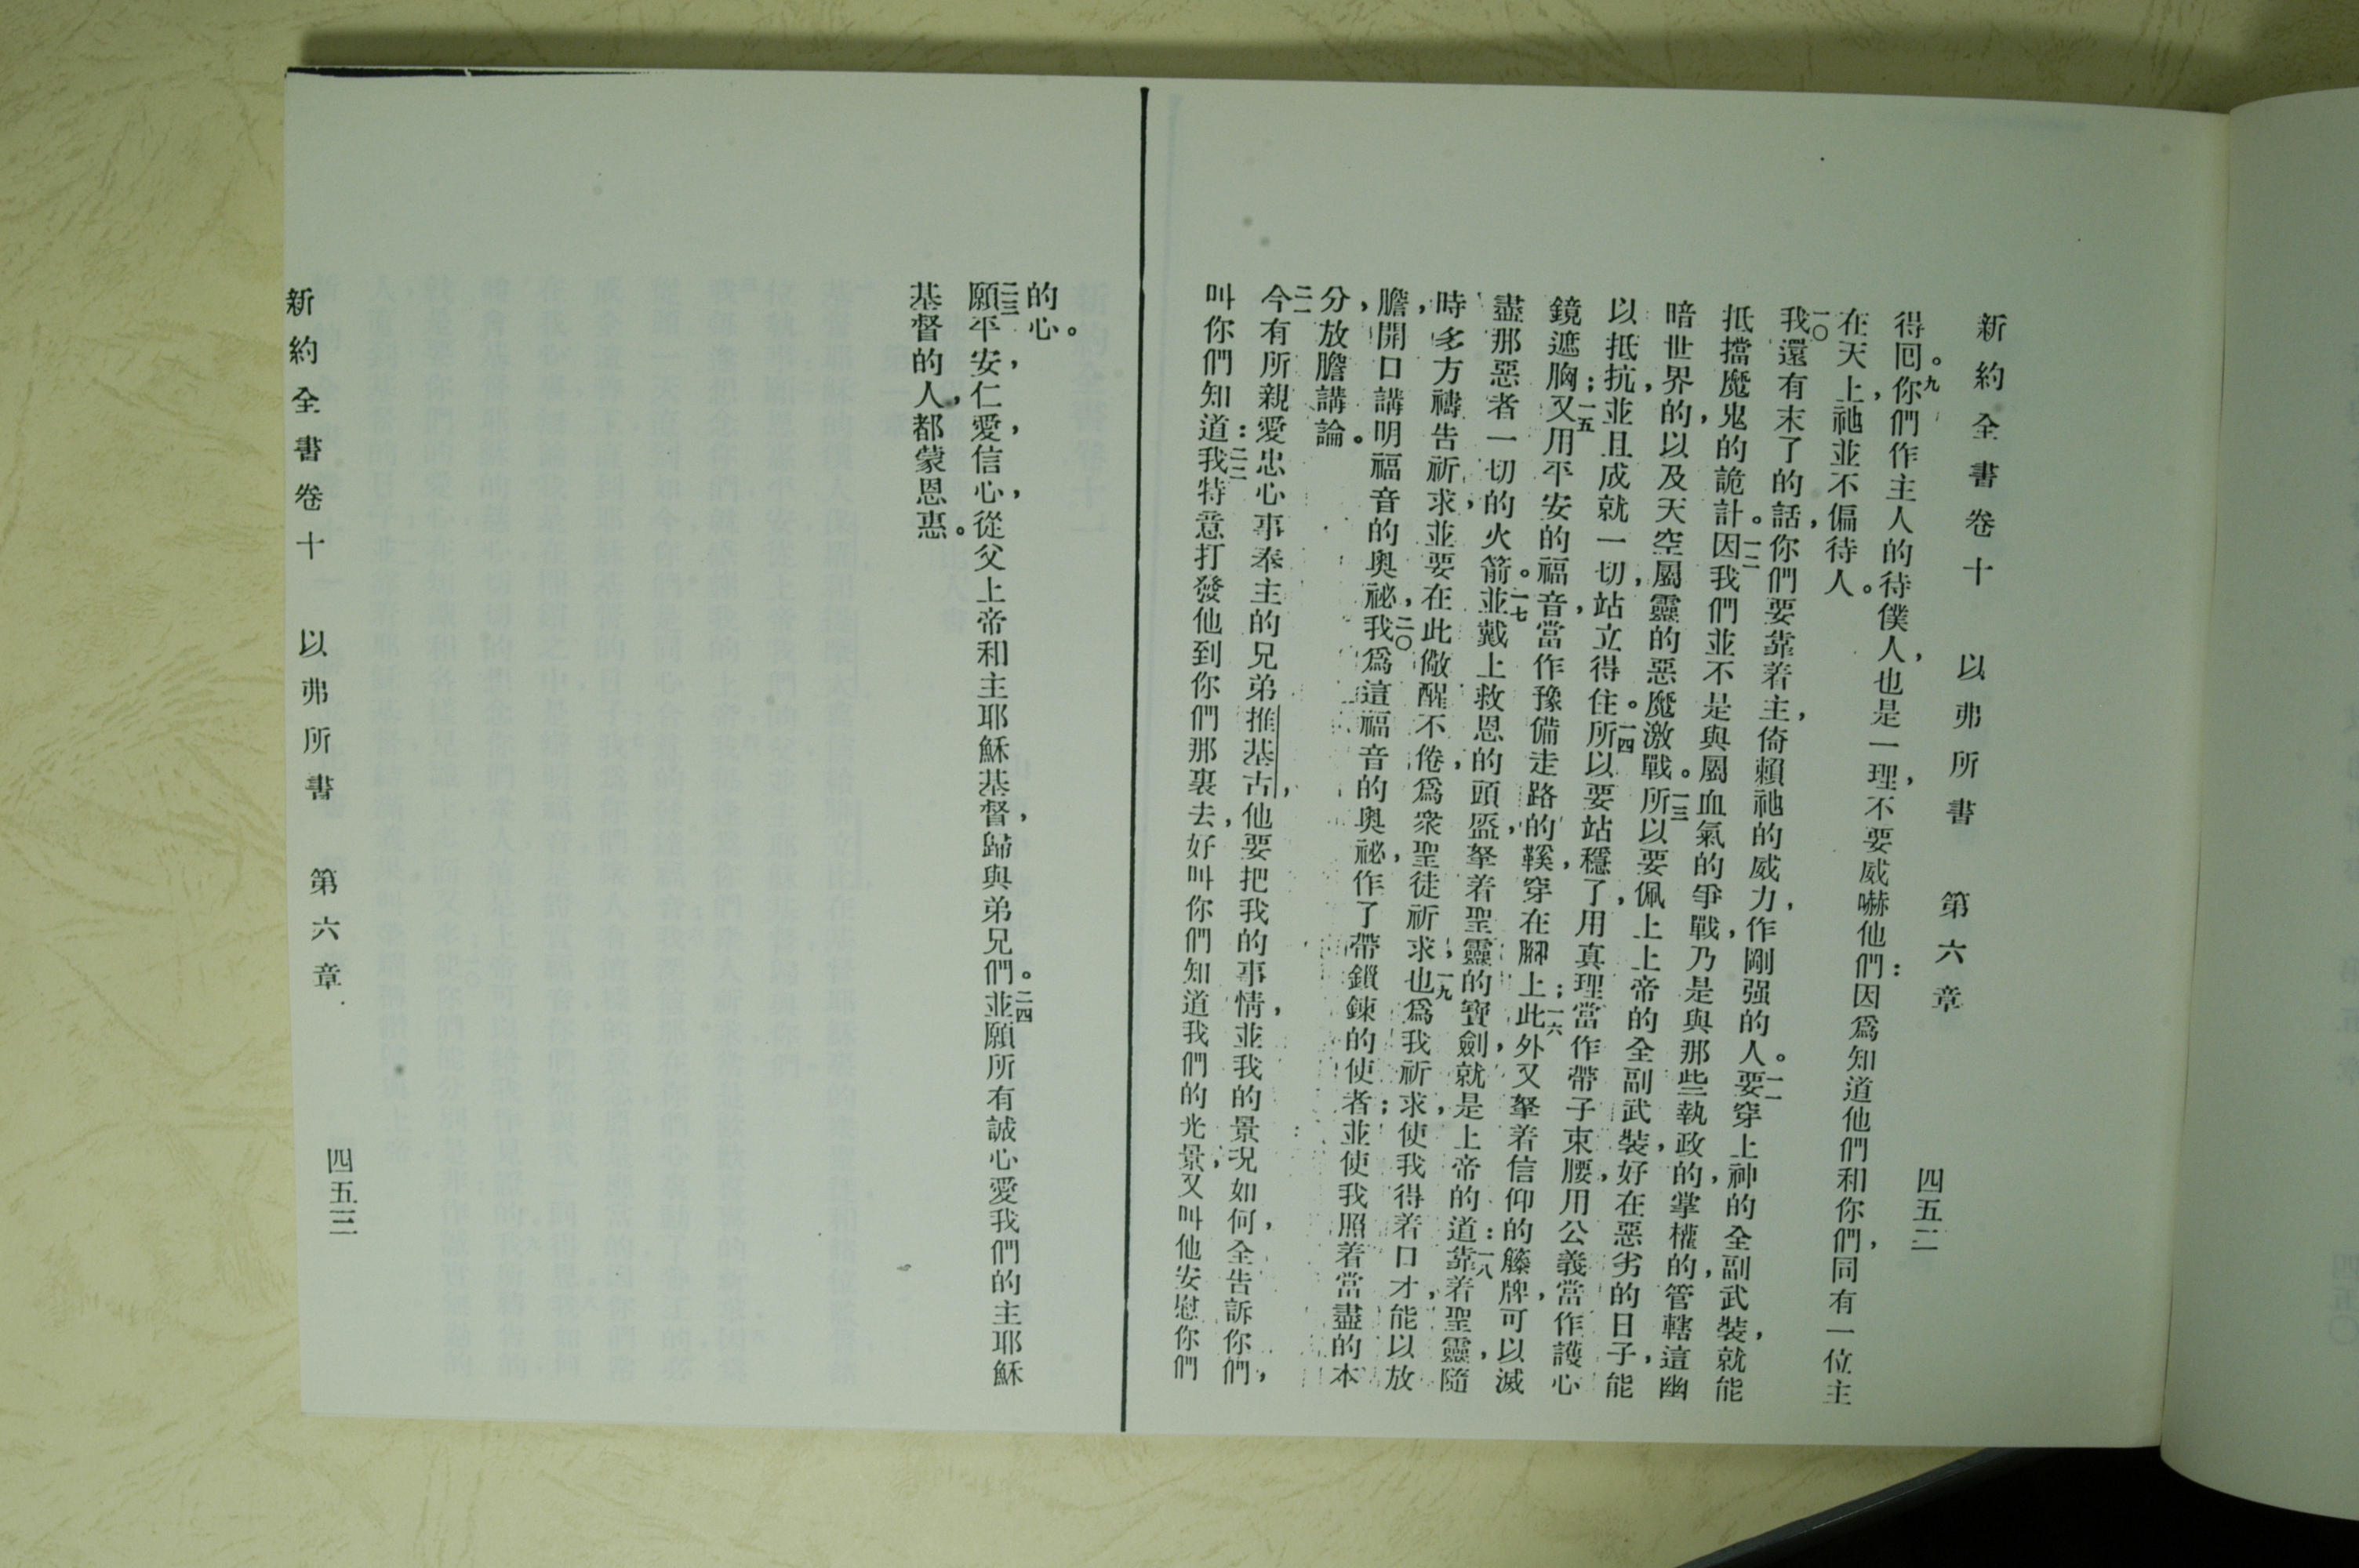 新約全書卷十 以弗所書 第六章 四五二
得囘。九你們作主人的待僕人，也是一理，不要威嚇他們：因爲知道他們和你們，同有一位主
在天上，祂並不偏待人。
一〇我還有末了的話，你們要靠着主，倚賴祂的威力，作剛强的人。一一要穿上神的全副武裝，就能
抵擋魔鬼的詭計。一二因我們並不是與屬血氣的爭戰，乃是與那些執政的，掌權的，管轄這幽
暗世界的，以及天空屬靈的惡魔激戰。一三所以要佩上上帝的全副武裝，好在惡劣的日子，能
以抵抗，並且成就一切，站立得住。一四所以要站穩了，用真理當作帶子束腰，用公義當作護心
鏡遮胸；一五又用平安的福音，當作豫備走路的鞵，穿在腳上；一六此外又拏着信仰的籐牌，可以滅
盡那惡者一切的火箭。一七並戴上救恩的頭盔，拏着聖靈的寶劍，就是上帝的道：一八靠着聖靈，隨
時多方禱告祈求，並要在此儆醒不倦，爲衆聖徒祈求，一九也爲我祈求，使我得着口才，能以放
膽，開口講明福音的奥祕，二〇我爲這福音的奥祕，作了帶鎻鍊的使者；並使我照着當盡的本
分，放膽講論。
二一今有所親愛忠心事奉主的兄弟推基古，他要把我的事情，並我的景况如何，全告訴你們，
叫你們知道：二二我特意打發他到你們那裏去，好叫你們知道我們的光景，又叫他安慰你們
的心。
二三願平安，仁愛，信心，從父上帝和主耶穌基督，歸與弟兄們。二四並願所有誠心愛我們的主耶穌
基督的人，都蒙恩惠。
新約全書卷十 以弗所書 第六章 四五三